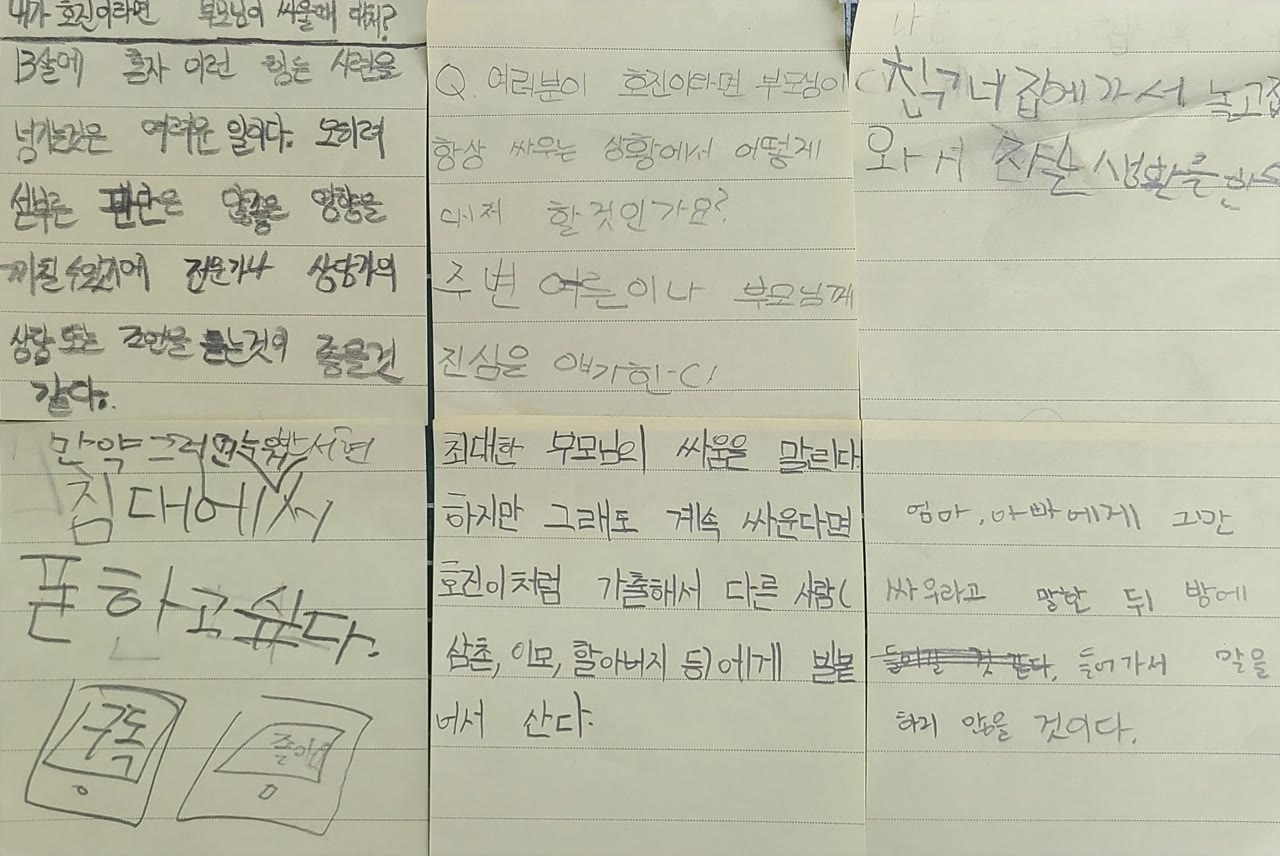 내가 호진이라면 부모님이 싸울때 대처?
13살에 혼자 이런 힘든 시련을
넘기는것은 어려운 일이다. 오히려
섣부른 판단은 안좋은 영향을
끼칠수있기에 전문가나 상담가의
상담 또는 조언을 듣는것이 좋을것
같다.
Q. 여러분이 호진이라면 부모님이
항상 싸우는 상황에서 어떻게
대처 할것인가요?
주변 어른이나 부모님께
진심을 얘기한다
친구네 집에가서 놀고
와서
생활을
만약 그러면
침대에서
폰 하고 싶다.
구독
최대한 부모님의 싸움을 말린다.
하지만 그래도 계속 싸운다면
호진이처럼 가출해서 다른 사람(
삼촌, 이모, 할아버지 등)에게 빌붙
어서 산다.
엄마, 아빠에게 그만
싸우라고 말한 뒤 방에
들어가서 말을
하지 않을 것이다.